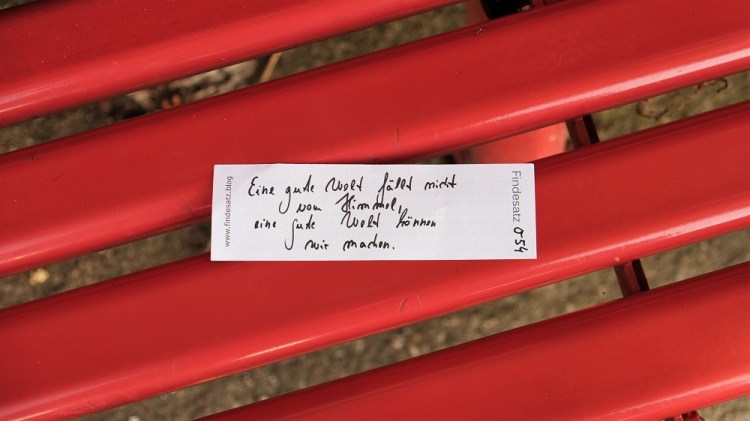 Eine gute Welt fällt nicht
vom Himmel,
eine gute Welt können
wir machen.
Findesatz 054
www.findesatz.blog